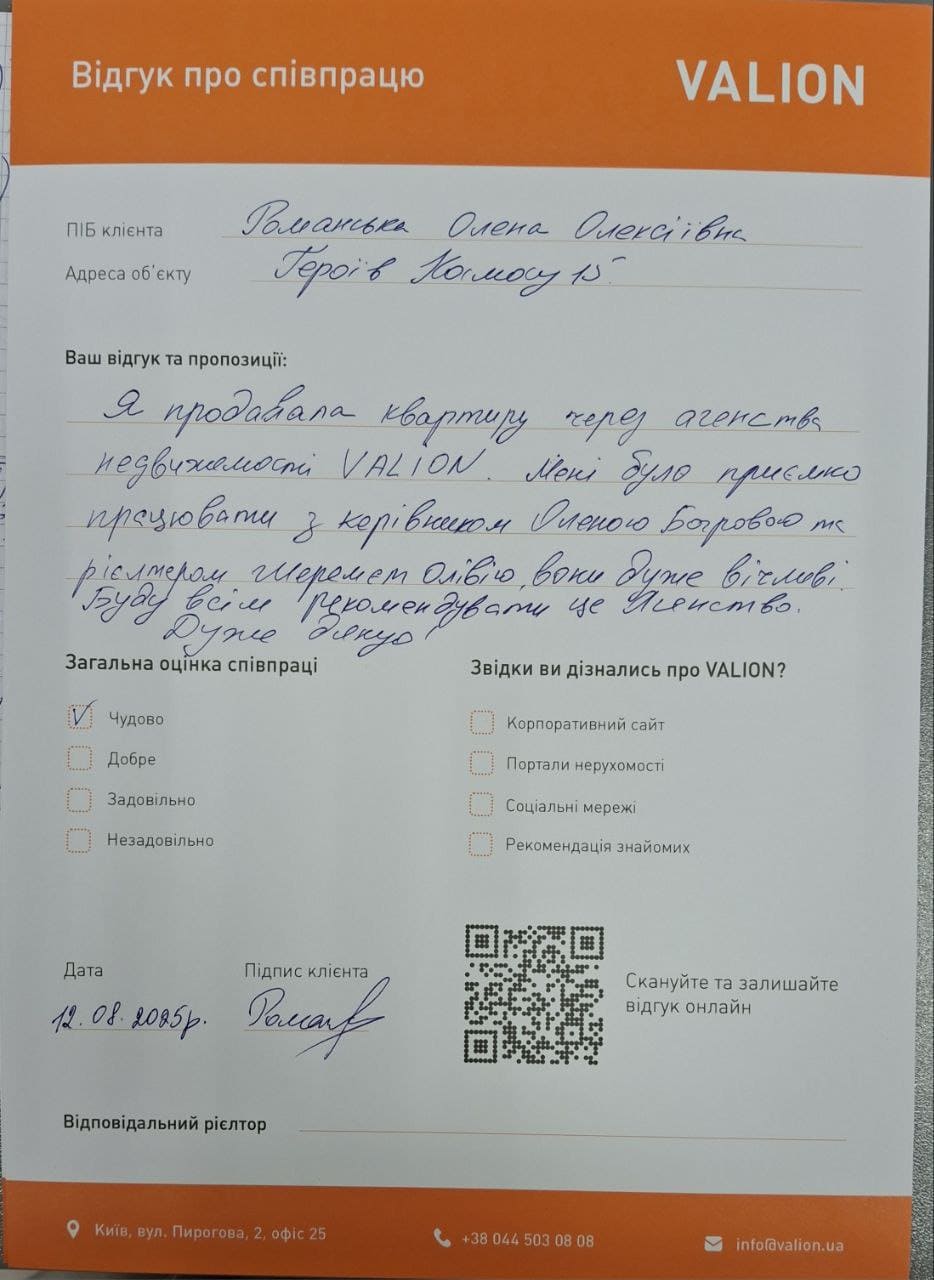 Відгук про співпрацю
VALION
ПІБ клієнта Романська Олена Олексіївна
Адреса об'єкту Героїв Космосу 15
Ваш відгук та пропозиції:
Я продавала квартиру через агенства
недвижемості VALION. Мені було приємно
працювати з керівником Оленою Богровою та
рієлтером Шеремет Олівією, вони дуже вічлеві.
Буду всім рекомендувати це Агенство.
Дуже дякую!
Загальна оцінка співпраці
Чудово
Добре
Задовільно
Незадовільно
Звідки ви дізнались про VALION?
Корпоративний сайт
Портали нерухомості
Соціальні мережі
Рекомендація знайомих
Дата
12.08.2025р.
Підпис клієнта
Скануйте та залишайте
відгук онлайн
Відповідальний рієлтор
Київ, вул. Пирогова, 2, офіс 25
+38 044 503 08 08
info@valion.ua